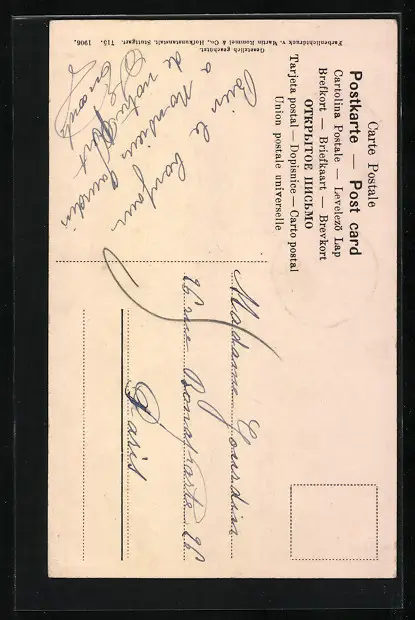 Carte Postale
Postkarte — Post card
Cartolina Postale — Levelező Lap
Brefkort — Briefkaart — Brevkort
ОТКРЫТОЕ ПИСЬМО
Tarjeta postal — Dopisnice — Carto postal
Union postale universelle
le bonjour
a Monsieur Gourdin
de notre part
Madame Gourdin
26 rue Bonaparte 26
Paris
Gesetzlich geschützt.
Farbenlichtdruck v. Martin Rommel & Co., Hofkunstanstalt, Stuttgart. 715. 1906.